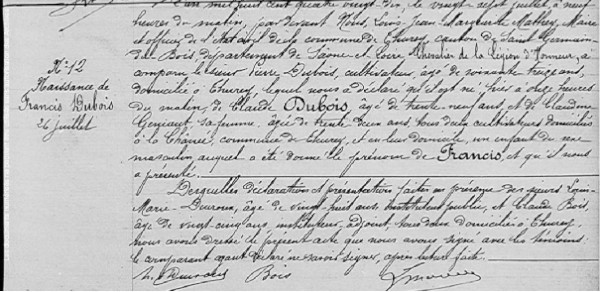 N° 12
Naissance de
Francis Dubois
26 juillet
L'an mil huit cent quatre vingt dix, le vingt sept juillet, à neuf
heures du matin, par devant Nous, Louis Jean Marguerite Mathey, Maire
et officier de l'état civil de la commune de Thurey, canton de Saint Germain
du Bois, département de Saône et Loire, Chevalier de la Légion d'Honneur, a
comparu le sieur Pierre Dubois, cultivateur, âgé de soixante treize ans,
domicilié à Thurey, lequel nous a déclaré qu'il est né hier à onze heures
du matin, de Claude Dubois, âgé de trente neuf ans, et de Claudine
Geniaut, sa femme, âgée de trente deux ans, tous deux cultivateurs domiciliés
à la Chaux, commune de Thurey, et en leur domicile, un enfant du sexe
masculin auquel a été donné le prénom de Francis, et qu'il nous
a présenté.
Desquelles déclaration et présentation faites en présence des sieurs Louis
Marie Duvrous, âgé de vingt huit ans, instituteur public, et Claude Bois,
âgé de vingt cinq ans, instituteur adjoint, tous deux domiciliés à Thurey,
nous avons dressé le présent acte que nous avons signé avec les témoins,
le comparant ayant déclaré ne savoir signer, après lecture faite.
Bois